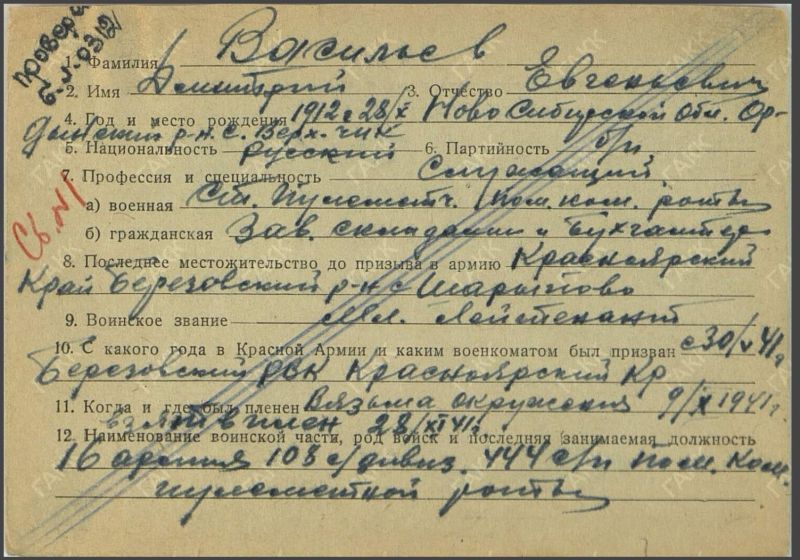 провере
6-V-03
1. Фамилия Васильев
2. Имя Дмитрий 3. Отчество Евгеньевич
4. Год и место рождения 1912 г 28/X Ново Сибирской Обл. Ор-
дынский р-н с. Верх. Чик
5. Национальность русский 6. Партийность б/п
7. Профессия и специальность Служащий
а) военная Ст. Пулеметч. Пом. ком. роты
б) гражданская Зав. складами и Бухгалтер
Св. №1
8. Последнее местожительство до призыва в армию Красноярский
Край Березовский р-н с Шарыпово
9. Воинское звание Мл. Лейтенант
10. С какого года в Красной Армии и каким военкоматом был призван с 30/V 41 г
Березовский РВК Красноярский Кр
11. Когда и где был пленен Вязьма окружения 9/X 1941 г.
взят в плен 28/XI 41 г
12. Наименование воинской части, род войск и последняя занимаемая должность
16 армия 108 с/дивиз. 444 с/п пом. Ком.
пулеметной роты
ГАКК